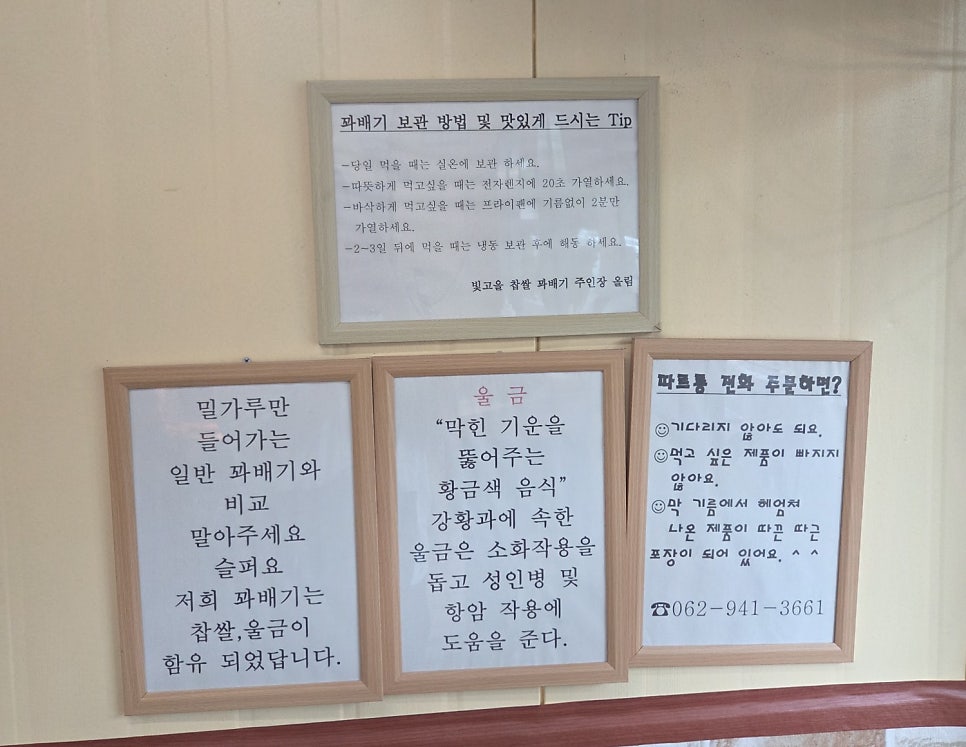 꽈배기 보관 방법 및 맛있게 드시는 Tip
-당일 먹을 때는 실온에 보관 하세요.
-따뜻하게 먹고싶을 때는 전자렌지에 20초 가열하세요.
-바삭하게 먹고싶을 때는 프라이팬에 기름없이 2분만
가열하세요.
-2~3일 뒤에 먹을 때는 냉동 보관 후에 해동 하세요.
빛고을 찹쌀 꽈배기 주인장 올림
밀가루만
들어가는
일반 꽈배기와
비교
말아주세요
슬퍼요
저희 꽈배기는
찹쌀,울금이
함유 되었답니다.
울 금
“막힌 기운을
뚫어주는
황금색 음식”
강황과에 속한
울금은 소화작용을
돕고 성인병 및
항암 작용에
도움을 준다.
따르릉 전화 주문하면?
☺기다리지 않아도 되요.
☺먹고 싶은 제품이 빠지지
않아요.
☺막 기름에서 헤엄쳐
나온 제품이 따끈 따근
포장이 되어 있어요. ^ ^
☎062-941-3661